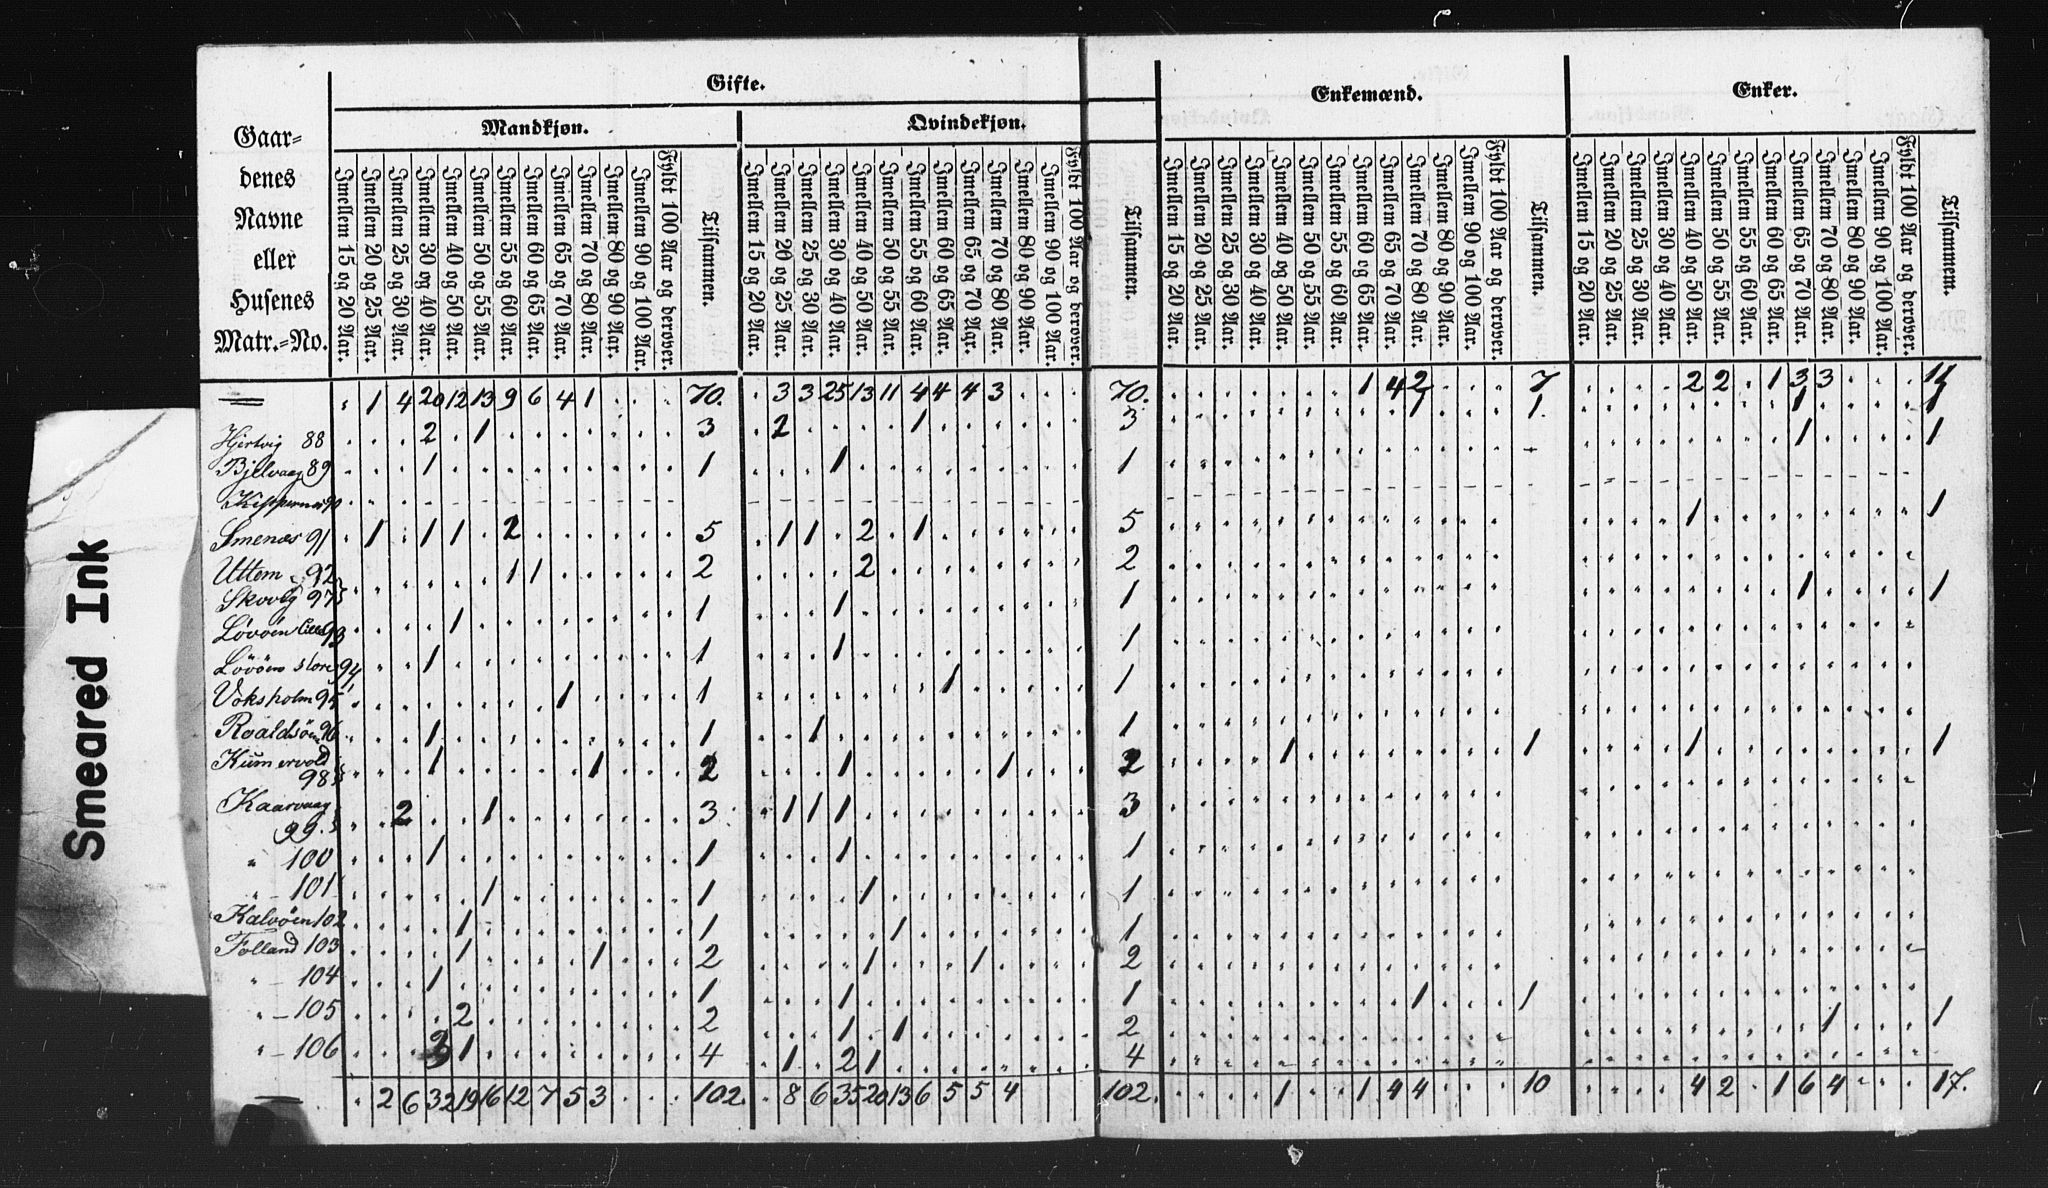 Smeared Ink
Gifte.
Enkemænd.
Enker.
Mandkjøn.
Qvindekjøn.
Gaar-
denes
Navne
eller
Husenes
Matr.-No.
Imellem 15 og 20 Aar.
Imellem 20 og 25 Aar.
Imellem 25 og 30 Aar.
Imellem 30 og 40 Aar.
Imellem 40 og 50 Aar.
Imellem 50 og 55 Aar.
Imellem 55 og 60 Aar.
Imellem 60 og 65 Aar.
Imellem 65 og 70 Aar.
Imellem 70 og 80 Aar.
Imellem 80 og 90 Aar.
Imellem 90 og 100 Aar.
Fyldt 100 Aar og derover.
Tilsammen.
Imellem 15 og 20 Aar.
Imellem 20 og 25 Aar.
Imellem 25 og 30 Aar.
Imellem 30 og 40 Aar.
Imellem 40 og 50 Aar.
Imellem 50 og 55 Aar.
Imellem 55 og 60 Aar.
Imellem 60 og 65 Aar.
Imellem 65 og 70 Aar.
Imellem 70 og 80 Aar.
Imellem 80 og 90 Aar.
Imellem 90 og 100 Aar.
Fyldt 100 Aar og derover.
Tilsammen.
Imellem 15 og 20 Aar.
Imellem 20 og 25 Aar.
Imellem 25 og 30 Aar.
Imellem 30 og 40 Aar.
Imellem 40 og 50 Aar.
Imellem 50 og 55 Aar.
Imellem 55 og 60 Aar.
Imellem 60 og 65 Aar.
Imellem 65 og 70 Aar.
Imellem 70 og 80 Aar.
Imellem 80 og 90 Aar.
Imellem 90 og 100 Aar.
Fyldt 100 Aar og derover.
Tilsammen.
Imellem 15 og 20 Aar.
Imellem 20 og 25 Aar.
Imellem 25 og 30 Aar.
Imellem 30 og 40 Aar.
Imellem 40 og 50 Aar.
Imellem 50 og 55 Aar.
Imellem 55 og 60 Aar.
Imellem 60 og 65 Aar.
Imellem 65 og 70 Aar.
Imellem 70 og 80 Aar.
Imellem 80 og 90 Aar.
Imellem 90 og 100 Aar.
Fyldt 100 Aar og derover.
Tilsammen.
1 4 20 12 13 9 6 4 1 70. 3 3 25 13 11 4 4 4 3 70. 1 4 2 7 2 2 1 3 3
Hjertvig 88 2 1 3 2 1 3 1 1. 1 1
Bjelvaag 89 1 1 1 1 1 1
90
Smenæs 91 1 1 1 2 5 1 1 2 1 5 1 1
Uttem 92 1 1 2 2 2
Skovlg 97 1 1 1 1 1
Lövöen lille 93 1 1 1 1
Lövöen store 94 1 1 1 1
Voksholm 95 1 1 1 1
Roaldsöen 96 1 1 1 1
Kumervold 98 1 1 2 1 1 2 1 1 1 1
Kaarvaag 99 2 1 3 1 1 1 3
" 100 1 1 1 1
" 101 1 1 1 1
Kalvöen 102 1 1 1 1
Folland 103 1 1 2 1 1 2
" 104 1 1 1 1 1 1
" 105 2 2 1 1 2 1 1
" 106 3 1 4 1 2 1 4
2 6 32 19 16 12 7 5 3 102. 8 6 35 20 13 6 5 5 4 102. 1 1 4 4 10 4 2 1 6 4 17.